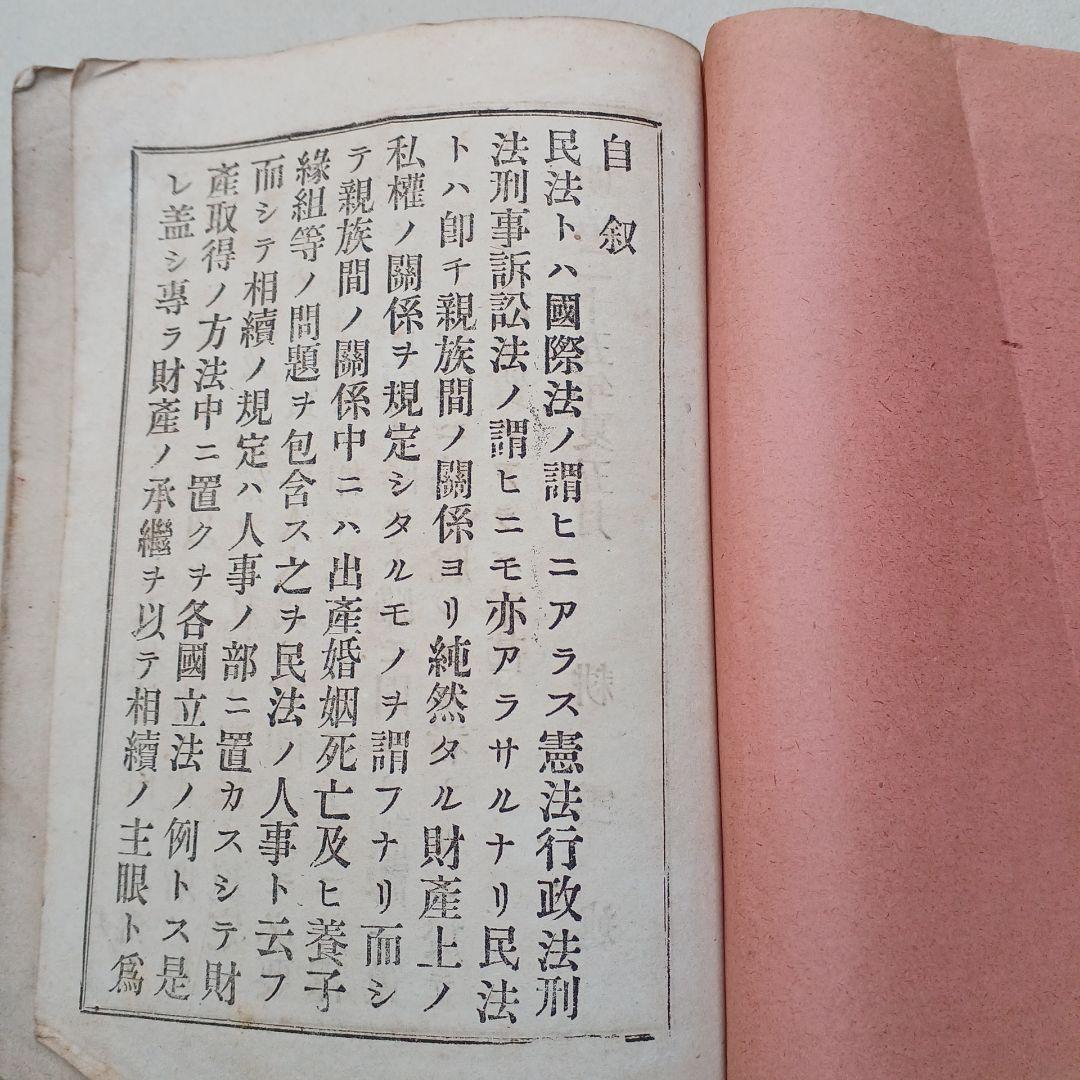 自叙
民法トハ國際法ノ謂ヒニアラス憲法行政法刑
法刑事訴訟法ノ謂ヒニモ亦アラサルナリ民法
トハ卽チ親族間ノ關係ヨリ純然タル財產上ノ
私權ノ關係ヲ規定シタルモノヲ謂フナリ而シ
テ親族間ノ關係中ニハ出產婚姻死亡及ヒ養子
緣組等ノ問題ヲ包含ス之ヲ民法ノ人事ト云フ
而シテ相續ノ規定ハ人事ノ部ニ置カスシテ財
產取得ノ方法中ニ置クヲ各國立法ノ例トス是
レ盖シ專ラ財產ノ承繼ヲ以テ相續ノ主眼ト爲